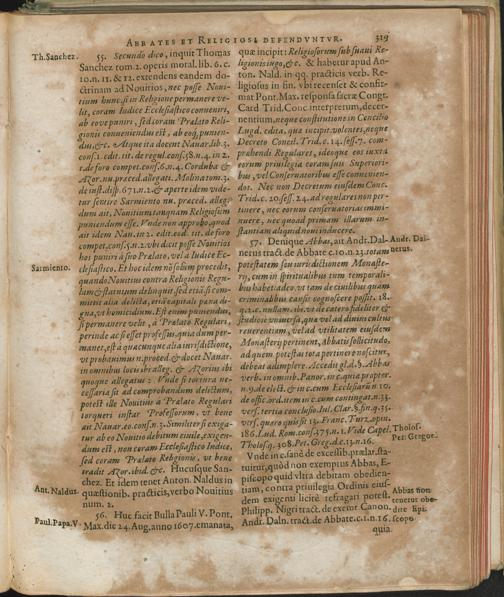 ABBATES ET RELIGIOSI DEFENDVNTVR.
319
Th. Sanchez.
55. Secundo dico, inquit Thomas
Sanchez tom. 2. operis moral. lib. 6. c.
10. n. 11. & 12. extendens eandem do-
ctrinam ad Nouitios, nec posse Noui-
tium hunc, si in Religione permanere ve-
lit, coram Iudice Ecclesiastico conueniri,
ab eove puniri, sed coram Prælato Reli-
gionis conueniendus est, ab eoq; punien-
dus, &c. Atque ita docent Nauar. lib. 3.
cons. 1. edit. tit. de regul. cons. 58. n. 4. in 2.
t. de foro compet. cons. 6. n. 4. Corduba &
Azor. nu. præced. allegati. Molina tom. 3.
de iust. disp. 671. n. 2. & aperte idem vide-
tur sentire Sarmiento nu. præced. alleg.
dum ait, Nouitium tanquam Religiosum
puniendum esse. Vnde non approbo, quod
ait idem Nau. in 2. edit. eod. tit. de foro
compet. cons. 5. n. 2. vbi dicit posse Nouitios
hos puniri à suo Prælato, vel a Iudice Ec-
Sarmiento.
clesiastico. Et hoc idem nõ solum procedit,
quando Nouitius contra Religionis Regu-
lam & statutum delinquit, sed etiã si com-
mittit alia delicta, etiã capitalis pœna di-
gna, vt homicidium. Est enim puniendus,
si permanere velit, à Prælato Regulari,
perinde ac si esset professus, quia dum per-
manet, est à quacunque alia iurisdictione,
vt probauimus n. præced. & docet Nauar.
in omnibus locis ibi alleg. & Azorius ibi
quoque allegatus. Vnde si tortura ne-
cessaria sit ad comprobandum delictum,
potest ille Nouitius à Prælato Regulari
torqueri instar Professorum, vt bene
ait Nauar. eo. cons. n. 3. Similiter si exiga-
tur ab eo Nouitio debitum ciuile, exigen-
dum est, non coram Ecclesiastico Iudice,
sed coram Prælato Religionis, vt bene
tradit Azor. ibid. &c. Hucusque San-
chez. Et idem tenet Anton. Naldus in
Ant. Naldus.
quæstionib. practicis, verbo Nouitius
num. 2.
56. Huc facit Bulla Pauli V. Pont.
Paul. Papa. V.
Max. die 24. Aug. anno 1607. emanata,
quæ incipit: Religiosorum sub suaui Re-
ligionis iugo, &c. & habetur apud An-
ton. Nald. in qq. practicis verb. Re-
ligiosus in fin. vbi recenset & confir-
mat Pont. Max. responsa sacræ Congr.
Card. Trid. Conc. interpretum, decer-
nentium, neque constitutione in Concilio
Lugd. edita, quæ incipit volentes, neque
Decreto Concil. Trid. c. 14. sess. 7. com-
præhendi Regulares, ideoque eos iuxta
eorum priuilegia coram suis Superiori-
bus, vel Conseruatoribus esse conuenien-
dos. Nec non Decretum eiusdem Conc.
Trid. c. 20. sess. 24. ad regulares non per-
tinere, nec eorum conseruatorias immi-
nuere, nec quoad primam illarum in-
stantiam aliquid noui inducere.
57. Denique Abbas, ait Andr. Dal-
Andr. Dal-
nerus.
nerus tract. de Abbate c. 10. n. 23. totam
potestatem seu iurisdictionem Monaste-
rij, cum in spiritualibus tum temporali-
bus habet adeo, vt tam de ciuilibus quam
criminalibus causis cognoscere possit. 18.
q. 2. c. nullam. ibi. vt de cætero fideliter &
studiose vniuersa, quæ vel ad diuini cultus
reuerentiam, vel ad vtilitatem eiusdem
Monasterij pertinent, Abbatis sollicitudo,
ad quem potestas tota pertinere noscitur,
debeat adimplere. Accedit gl. d. §. Abbas
verb. in omnib. Panor. in c. quia propter.
n. 9. de elect. & in c. cum Ecclesiarũ n. 10.
de offic. ord. item in c. cum contingat. n. 33.
vers. tertia conclusio. Iul. Clar. §. fin. q. 35.
vers. quæro quid sit 13. Franc. Turz. opin.
186. Lud. Rom. cons. 475. n. 1. Vide Capel.
Tholos.
Tholos. q. 308. Pet. Greg. d. c. 13. n. 16.
Pet. Gregor.
Vnde in c. sanè de excessib. prælar. sta-
tuitur, quòd non exemptus Abbas, E-
piscopo quid vltra debitam obedien-
tiam, contra priuilegia Ordinis eius-
dem exigenti licitè refragari potest.
Abbas non
tenetur obe-
dire Epi-
scopo
Philipp. Nigri tract. de exempt. Canon.
Andr. Daln. tract. de Abbate. c. 1. n. 16.
quia